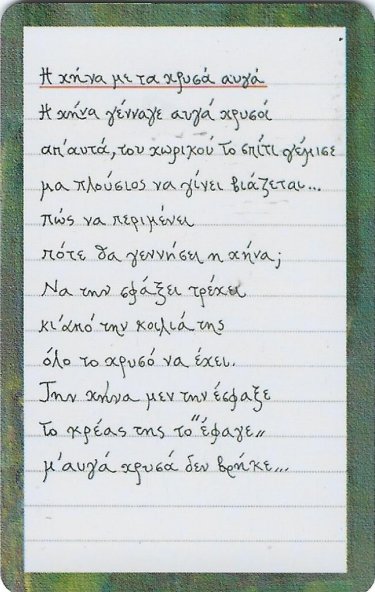 Η χήνα με τα χρυσά αυγά
Η χήνα γένναγε αυγά χρυσά
απ' αυτά, του χωρικού το σπίτι γέμισε
μα πλούσιος να γίνει βιάζεται...
πώς να περιμένει
πότε θα γεννήσει η χήνα;
Να την σφάξει τρέχει
κι από την κοιλιά της
όλο το χρυσό να έχει.
Την χήνα μεν την έσφαξε
το κρέας της το "έφαγε"
μ' αυγά χρυσά δεν βρήκε...